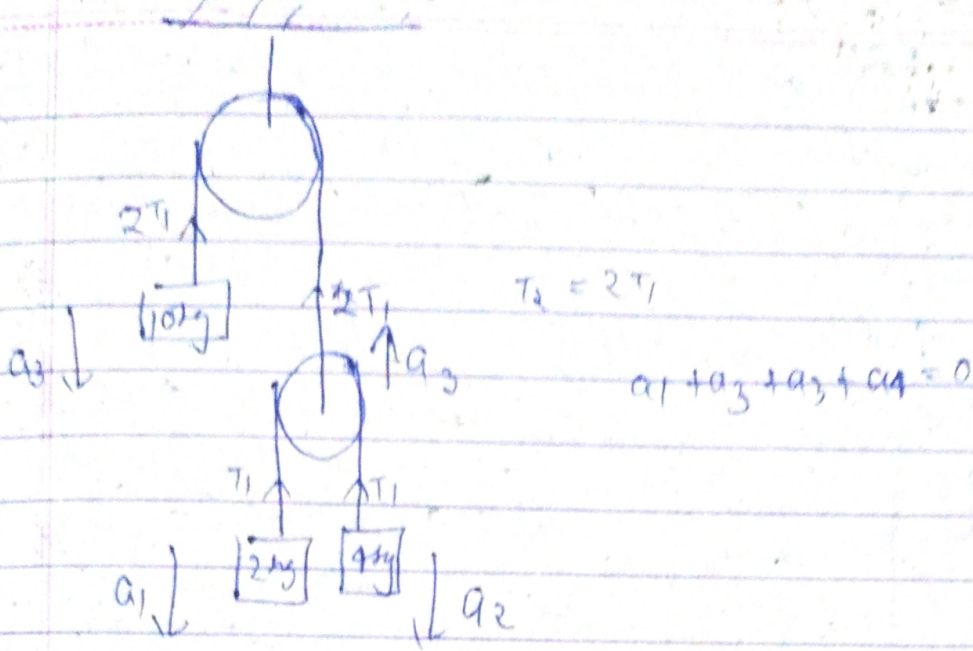 2T₁
10kg
a₃
2T₁
a₃
T₂ = 2T₁
a₁ + a₃ + a₃ + a4 = 0
T₁ T₁
2kg 4kg
a₁ a₂